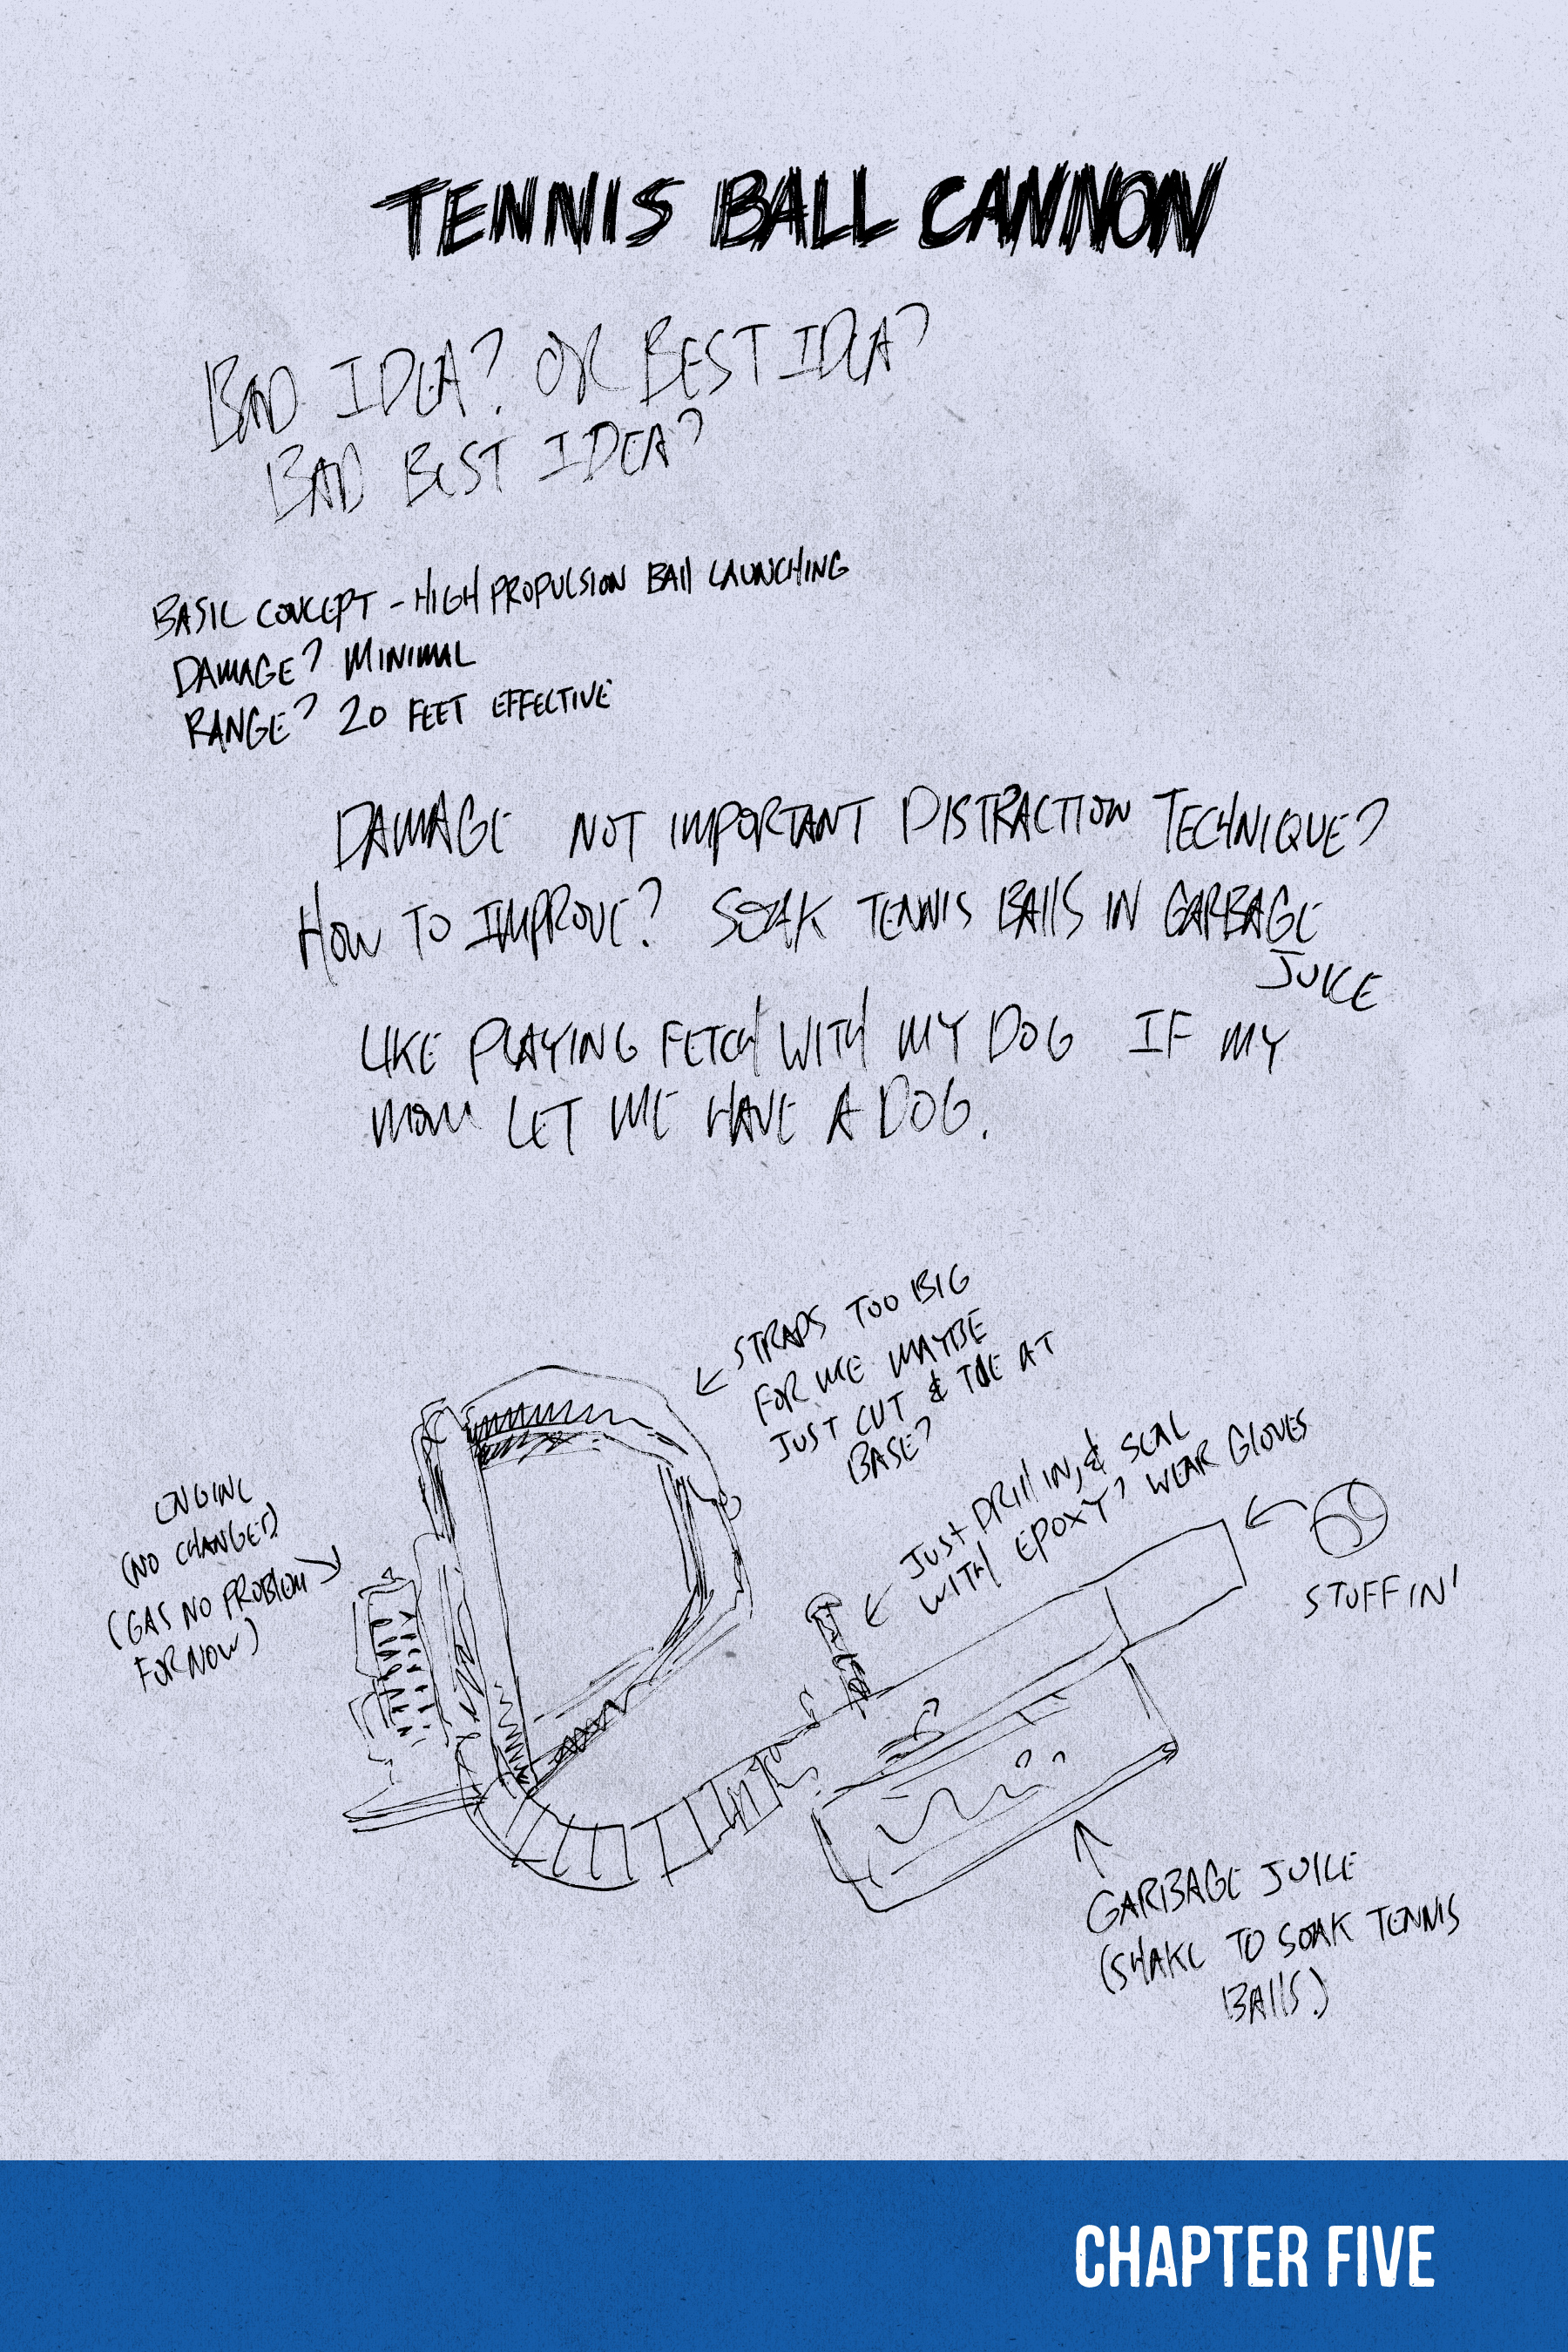 TENNIS BALL CANNON
BAD IDEA? OR BEST IDEA?
BAD BEST IDEA?
BASIC CONCEPT - HIGH PROPULSION BALL LAUNCHING
DAMAGE? MINIMAL
RANGE? 20 FEET EFFECTIVE
DAMAGE NOT IMPORTANT DISTRACTION TECHNIQUE?
HOW TO IMPROVE? SOAK TENNIS BALLS IN GARBAGE
JUICE
LIKE PLAYING FETCH WITH MY DOG IF MY
MOM LET ME HAVE A DOG.
STRAPS TOO BIG
FOR ME MAYBE
JUST CUT & TIE AT
BASE?
JUST DRILL IN, & SEAL
WITH EPOXY? WEAR GLOVES
ENGINE
(NO CHANGES)
(GAS NO PROBLEM
FOR NOW)
STUFF IN!
GARBAGE JUICE
(SHAKE TO SOAK TENNIS
BALLS)
CHAPTER FIVE